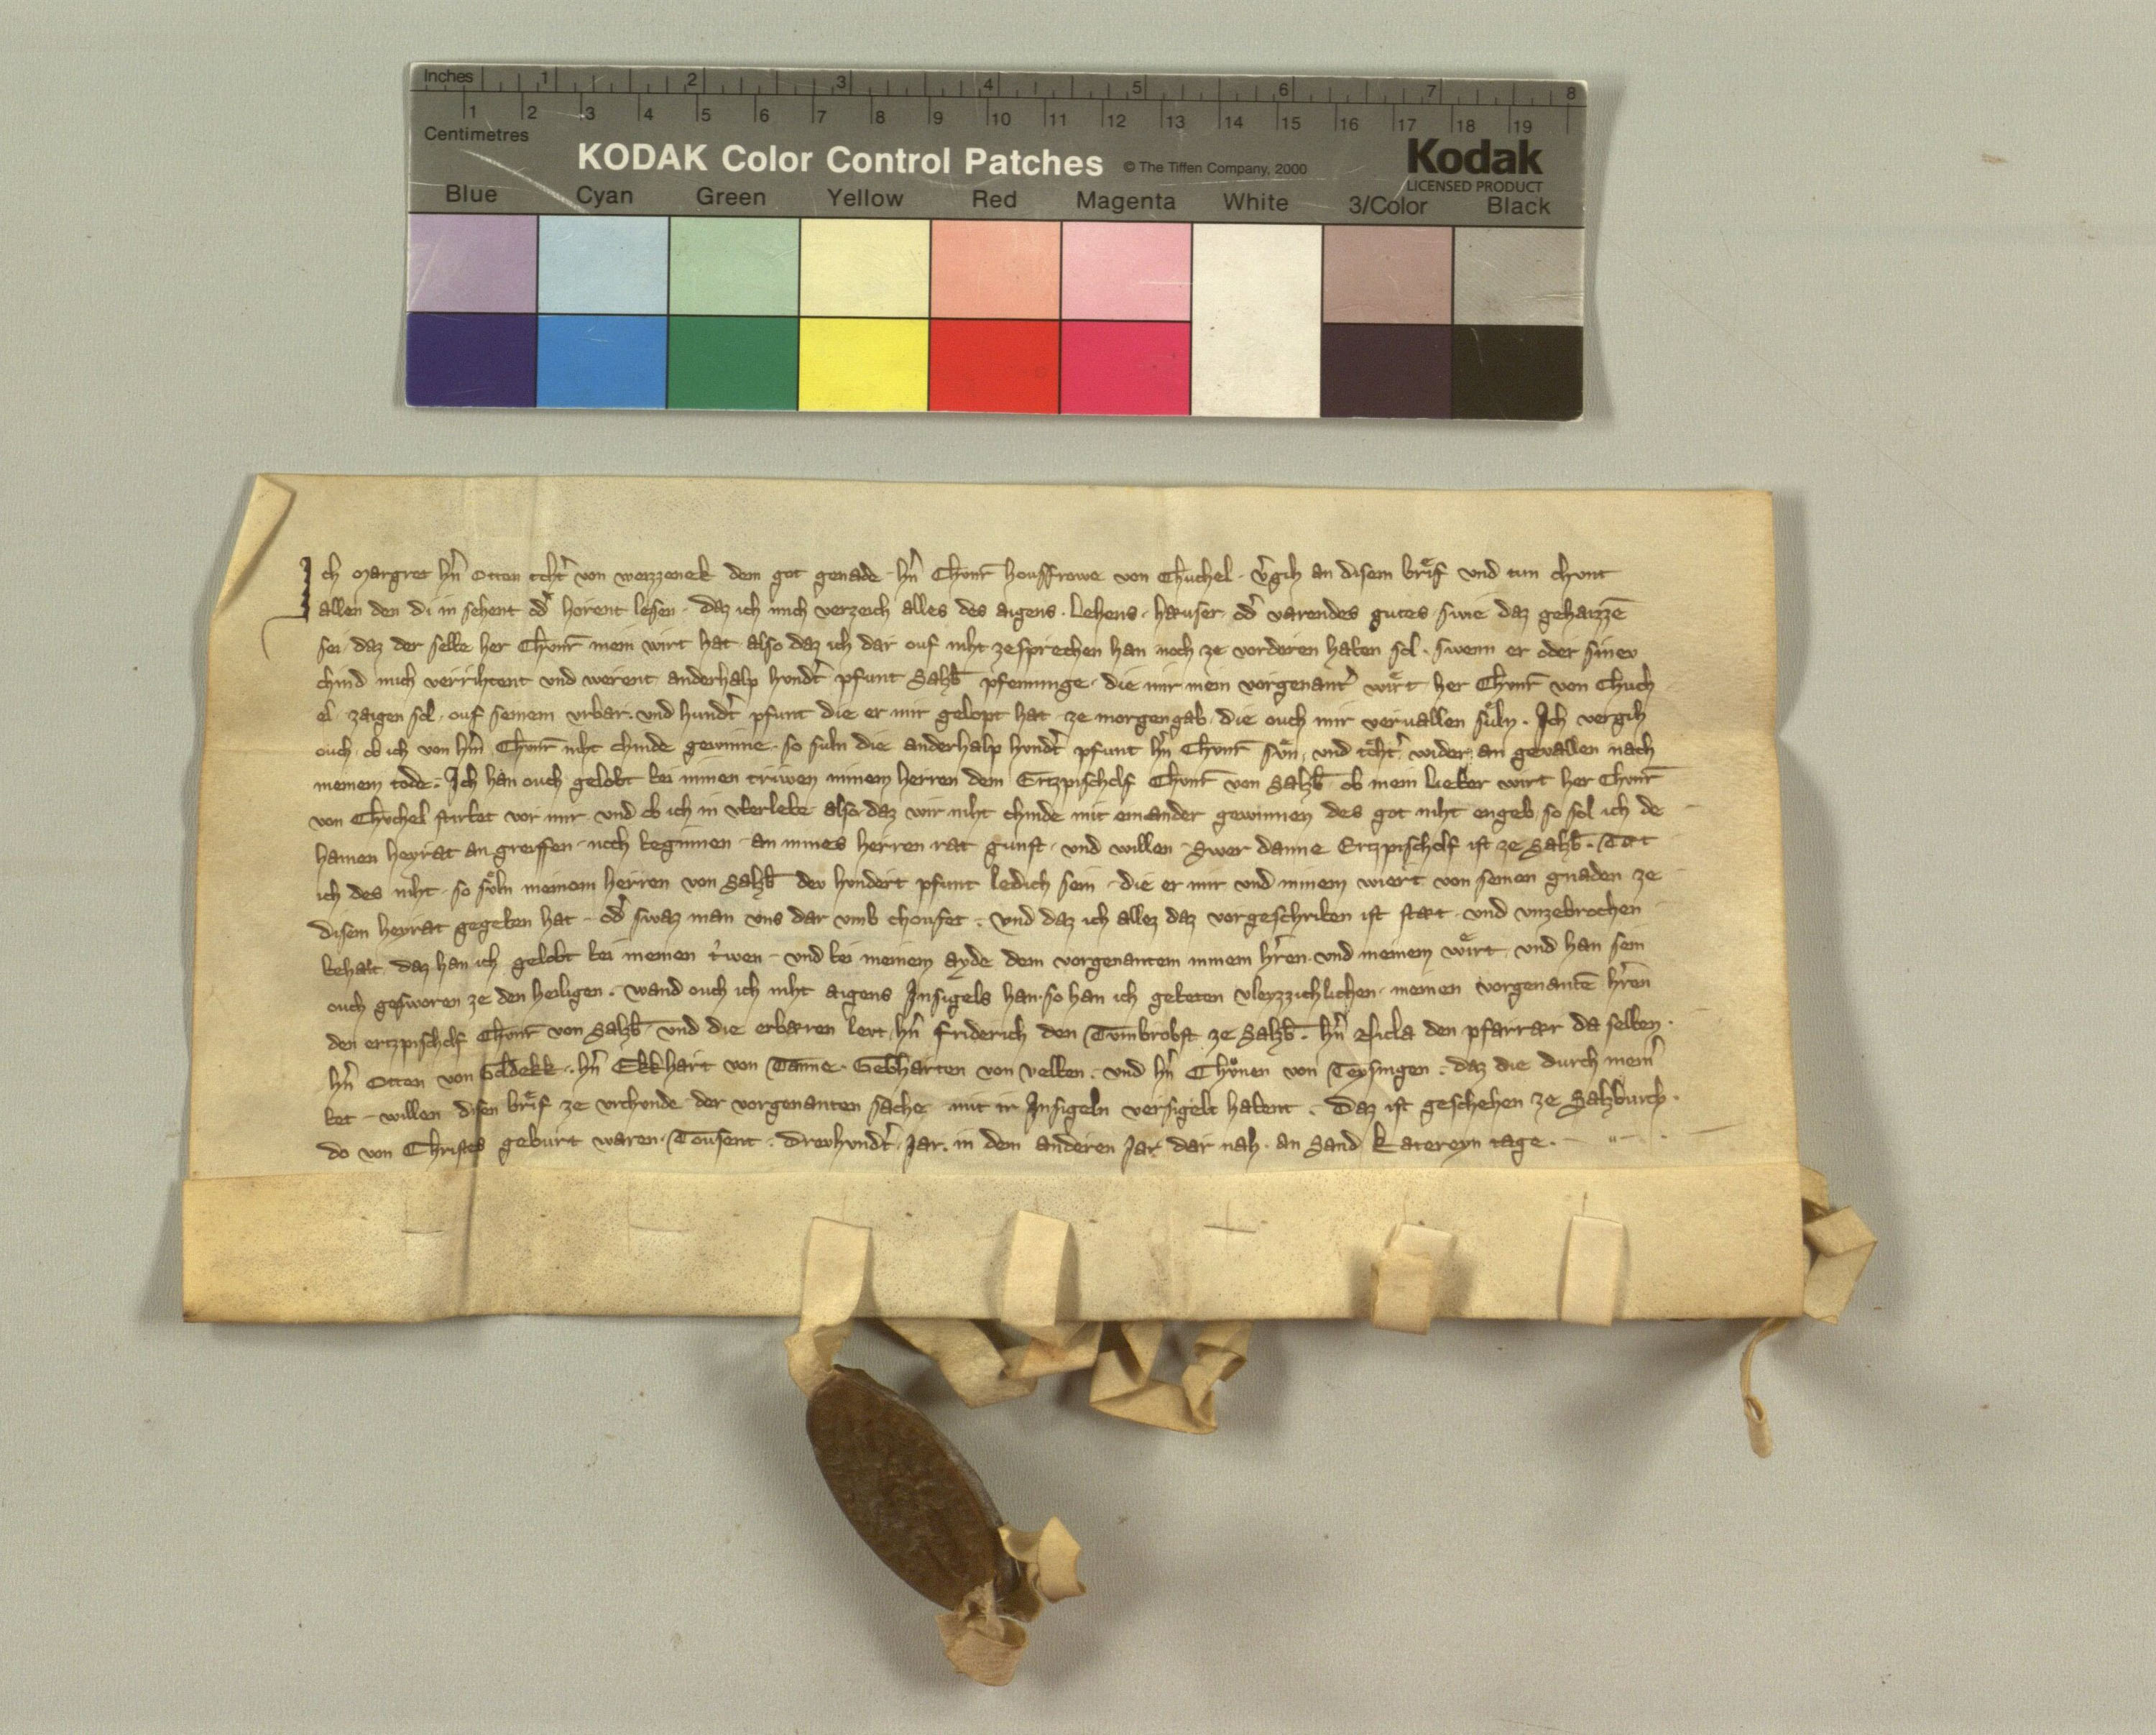 Inches 1 2 3 4 5 6 7 8
1 2 3 4 5 6 7 8 9 10 11 12 13 14 15 16 17 18 19
Centimetres
KODAK Color Control Patches © The Tiffen Company, 2000 Kodak
LICENSED PRODUCT
Blue Cyan Green Yellow Red Magenta White 3/Color Black
Ich Margret hn̄ Otten toht̄ von weizzenek dem got genade hn̄ Chvnr̄ housfrowe von Chuchel v̄gih an disem brif vnd tun chunt
allen den di in sehent od̄ horent lesen daz ich mich verzeich alles des aigens Lehens hauser od̄ varendes gutes swie daz gehaizzē
sei daz der selbe her Chvnr̄ mein wirt hat also daz ich dar ouf niht ze sprechen han noch ze vorderen haben sol swenn er oder sinev
chind mich verrihtent vnd werent anderhalp hvndt̄ pfunt Salzb̄ pfenninge die mir mein vorgenant̄ wirt her Chvnr̄ von Chuch
el zaigen sol ouf seinem vrbar vnd hundt̄ pfunt die er mir gelopt hat ze morgengab die ouch mir veruallen suln Ich vergih
ouch ob ich von hn̄ Chvnr̄ niht chinde gewinne so suln die anderhalp hvndt̄ pfunt hn̄ Chvnr̄ svn vnd toht̄ wider an gevallen nach
meinem tode Ich han ouch gelobt bei minen triwen minem herren dem Ertzpischolf Chvnr̄ von Salzb̄ ob mein lieber wirt her Chvnr̄
von Chuchel stirbet vor mir vnd ob ich in vberlebe also daz wir niht chinde mit einander gewinnen des got niht engeb so sol ich de
hainen heyrat an greiffen noch beginnen an mines herren rat gunst vnd willen Swer danne Ertzpischolf ist ze Salzb̄ Tet
ich des niht so soln meinem herren von Salzb̄ dev hvndert pfunt ledich sein die er mir vnd minem wiert von seinen gnaden ze
disem heyrat gegeben hat od̄ swaz man vns dar vmb choufet vnd daz ich allez daz vorgeschriben ist stæt vnd vnzebrochen
behalt daz han ich gelobt bei meinen t̄wen vnd bei meinem ayde dem vorgenantem minem hr̄en vnd meinem wirt vnd han sein
ouch gesworen ze den heiligen wand ouch ich niht aigens Insigels han so han ich gebeten vleyzzichlichen meinen vorgenantē hr̄en
den ertzpischolf Chvnr̄ von Salzb̄ vnd die erbæren levt hn̄ Friderich den Tumbrobst ze Salzb̄ hn̄ Nicla den pfarrær da selben
hn̄ Otten von Goldekk hn̄ Ekkhart von Tanne Gebharten von velben vnd hn̄ Chvnen von Teysingen daz die durch mein̄
bet willen disen brif ze vrchvnde der vorgenanten sache mit ir Insigeln versigelt habent Daz ist geschehen ze Salzburch
do von Christes geburt waren Tousent drevhvndt̄ Jar in dem anderen Jar dar nah an Sand Katereyn tage